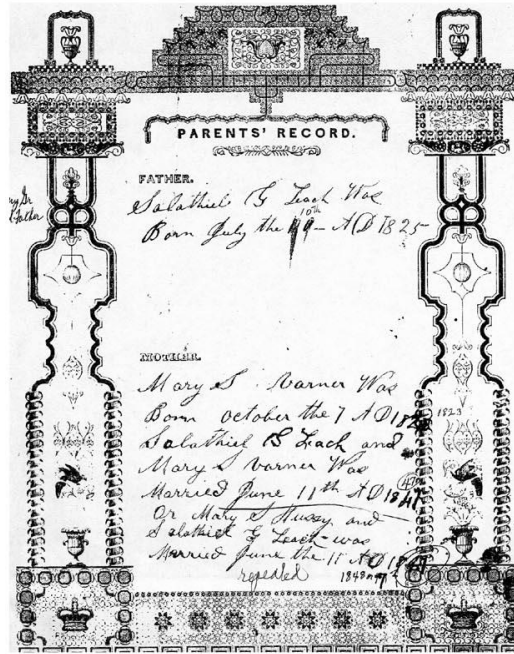 PARENTS' RECORD.
FATHER.
Salathiel G Leach Was
10th
Born July the – A D 1825
My Gr
Father
MOTHER.
Mary S. Varner Was
Born October the 7 A D 18
1823
Salathiel G Leach and
Mary S Varner Was
Married June 11th A D 1847
Or Mary S Hussy and
Salathiel G Leach was
Married June the 11 A D 18
repealed